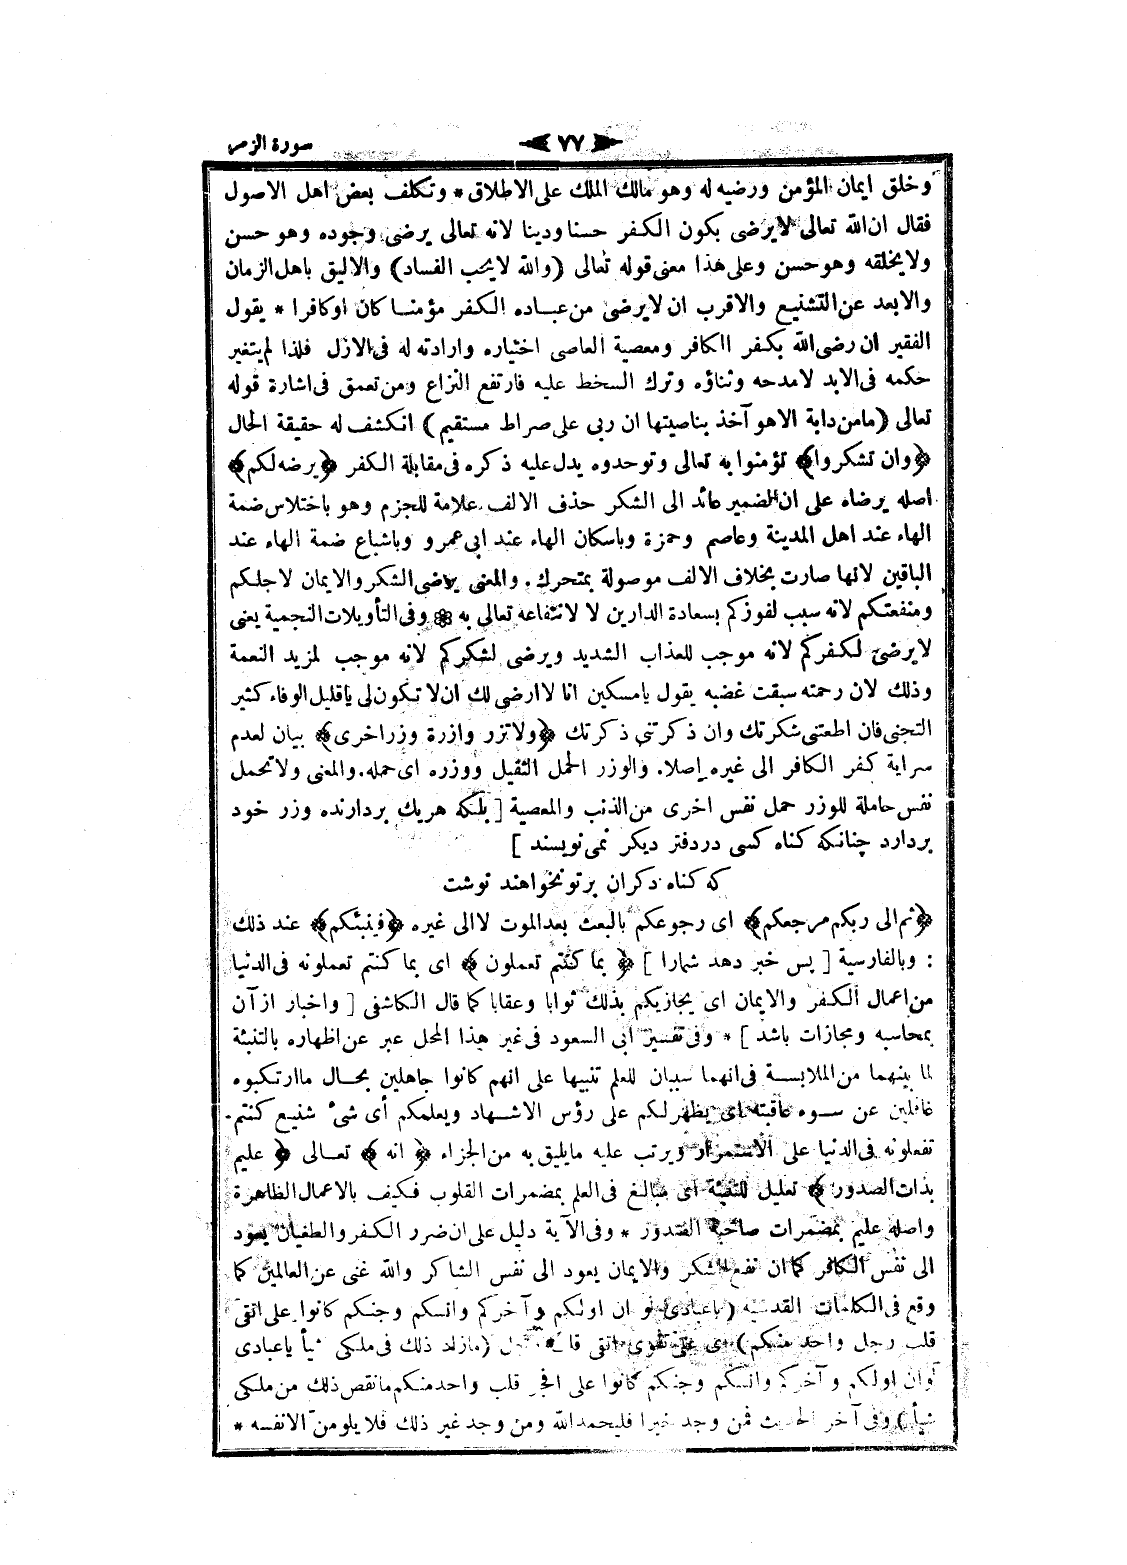 سورة الزمر
٧٧
وخلق ايمان المؤمن ورضيه له وهو مالك الملك على الاطلاق * وتكلف بعض اهل الاصول
فقال ان الله تعالى لايرضى بكون الكفر حسنا ودينا لانه تعالى يرضى وجوده وهو حسن
ولايخلقه وهو حسن وعلى هذا معنى قوله تعالى (والله لايحب الفساد) والاليق باهل الزمان
والابعد عن التشنيع والاقرب ان لايرضى من عباده الكفر مؤمنا كان اوكافرا * يقول
الفقير ان رضى الله بكفر االكافر ومعصية العاصى اختياره وارادته له فى الازل فلذا لم يتغير
حكمه فى الابد لامدحه وثناؤه وترك السخط عليه فارتفع النزاع ومن تعمق فى اشارة قوله
تعالى (مامن دابة الاهو آخذ بناصيتها ان ربى على صراط مستقيم) انكشف له حقيقة الحال
﴿وان تشكروا﴾ تؤمنوا به تعالى وتوحدوه يدل عليه ذكره فى مقابلة الكفر ﴿يرضه لكم﴾
اصله يرضاه على ان الضمير عائد الى الشكر حذف الالف علامة للجزم وهو باختلاس ضمة
الهاء عند اهل المدينة وعاصم وحمزة وباسكان الهاء عند ابى عمرو وباشباع ضمة الهاء عند
الباقين لانها صارت بخلاف الالف موصولة بمتحرك. والمعنى يرضى الشكر والايمان لاجلكم
ومنفعتكم لانه سبب لفوزكم بسعادة الدارين لا لانتفاعه تعالى به * وفى التأويلات النجمية يعنى
لايرضى لكفركم لانه موجب للعذاب الشديد ويرضى لشكركم لانه موجب لمزيد النعمة
وذلك لان رحمته سبقت غضبه يقول يامسكين انا لاارضى لك ان لا تكون لى ياقليل الوفاء كثير
التجنى فان اطعتنى شكرتك وان ذكرتنى ذكرتك ﴿ولاتزر وازرة وزر اخرى﴾ بيان لعدم
سراية كفر الكافر الى غيره اصلا. والوزر الحمل الثقيل ووزره اى حمله. والمعنى ولاتحمل
نفس حاملة للوزر حمل نفس اخرى من الذنب والمعصية [بلكه هريك بردارنده وزر خود
بردارد چنانكه كناه كسى دردفتر ديكر نمى نويسند]
كه كناه دكران برتونخواهند نوشت
﴿ثم الى ربكم مرجعكم﴾ اى رجوعكم بالبعث بعد الموت لاالى غيره ﴿فينبئكم﴾ عند ذلك
: وبالفارسية [پس خبر دهد شمارا] ﴿بما كنتم تعملون﴾ اى بما كنتم تعملونه فى الدنيا
من اعمال الكفر والايمان اى يجازيكم بذلك ثوابا وعقابا كما قال الكاشفى [واخبار ازآن
بمحاسبه ومجازات باشد] * وفى تفسير ابى السعود فى غير هذا المحل عبر عن اظهاره بالتنبئة
لما بينهما من الملابسة فى انهما سببان للعلم تنبيها على انهم كانوا جاهلين بحال ماارتكبوه
غافلين عن سوء عاقبته اى يظهر لكم على رؤس الاشهاد ويعلمكم أى شئ شنيع كنتم
تفعلونه فى الدنيا على الاستمرار ويرتب عليه مايليق به من الجزاء ﴿انه﴾ تعالى ﴿عليم
بذات الصدور﴾ تعليل للتنبئة اى مبالغ فى العلم بمضمرات القلوب فكيف بالاعمال الظاهرة
واصله عليم بمضمرات صاحبة الصدور * وفى الآية دليل على ان ضرر الكفر والطغيان يعود
الى نفس الكافر كما ان نفع الشكر والايمان يعود الى نفس الشاكر والله غنى عن العالمين كما
وقع فى الكلمات القدسية (ياعبادى لو ان اولكم وآخركم وانسكم وجنكم كانوا على اتقى
قلب رجل واحد منكم) اى على تقوى اتقى قلب رجل (مازاد ذلك فى ملكى شيأ ياعبادى
لوان اولكم وآخركم وانسكم وجنكم كانوا على افجر قلب واحد منكم مانقص ذلك من ملكى
شيأ) وفى آخر الحديث فمن وجد خيرا فليحمد الله ومن وجد غير ذلك فلا يلومن الانفسه *